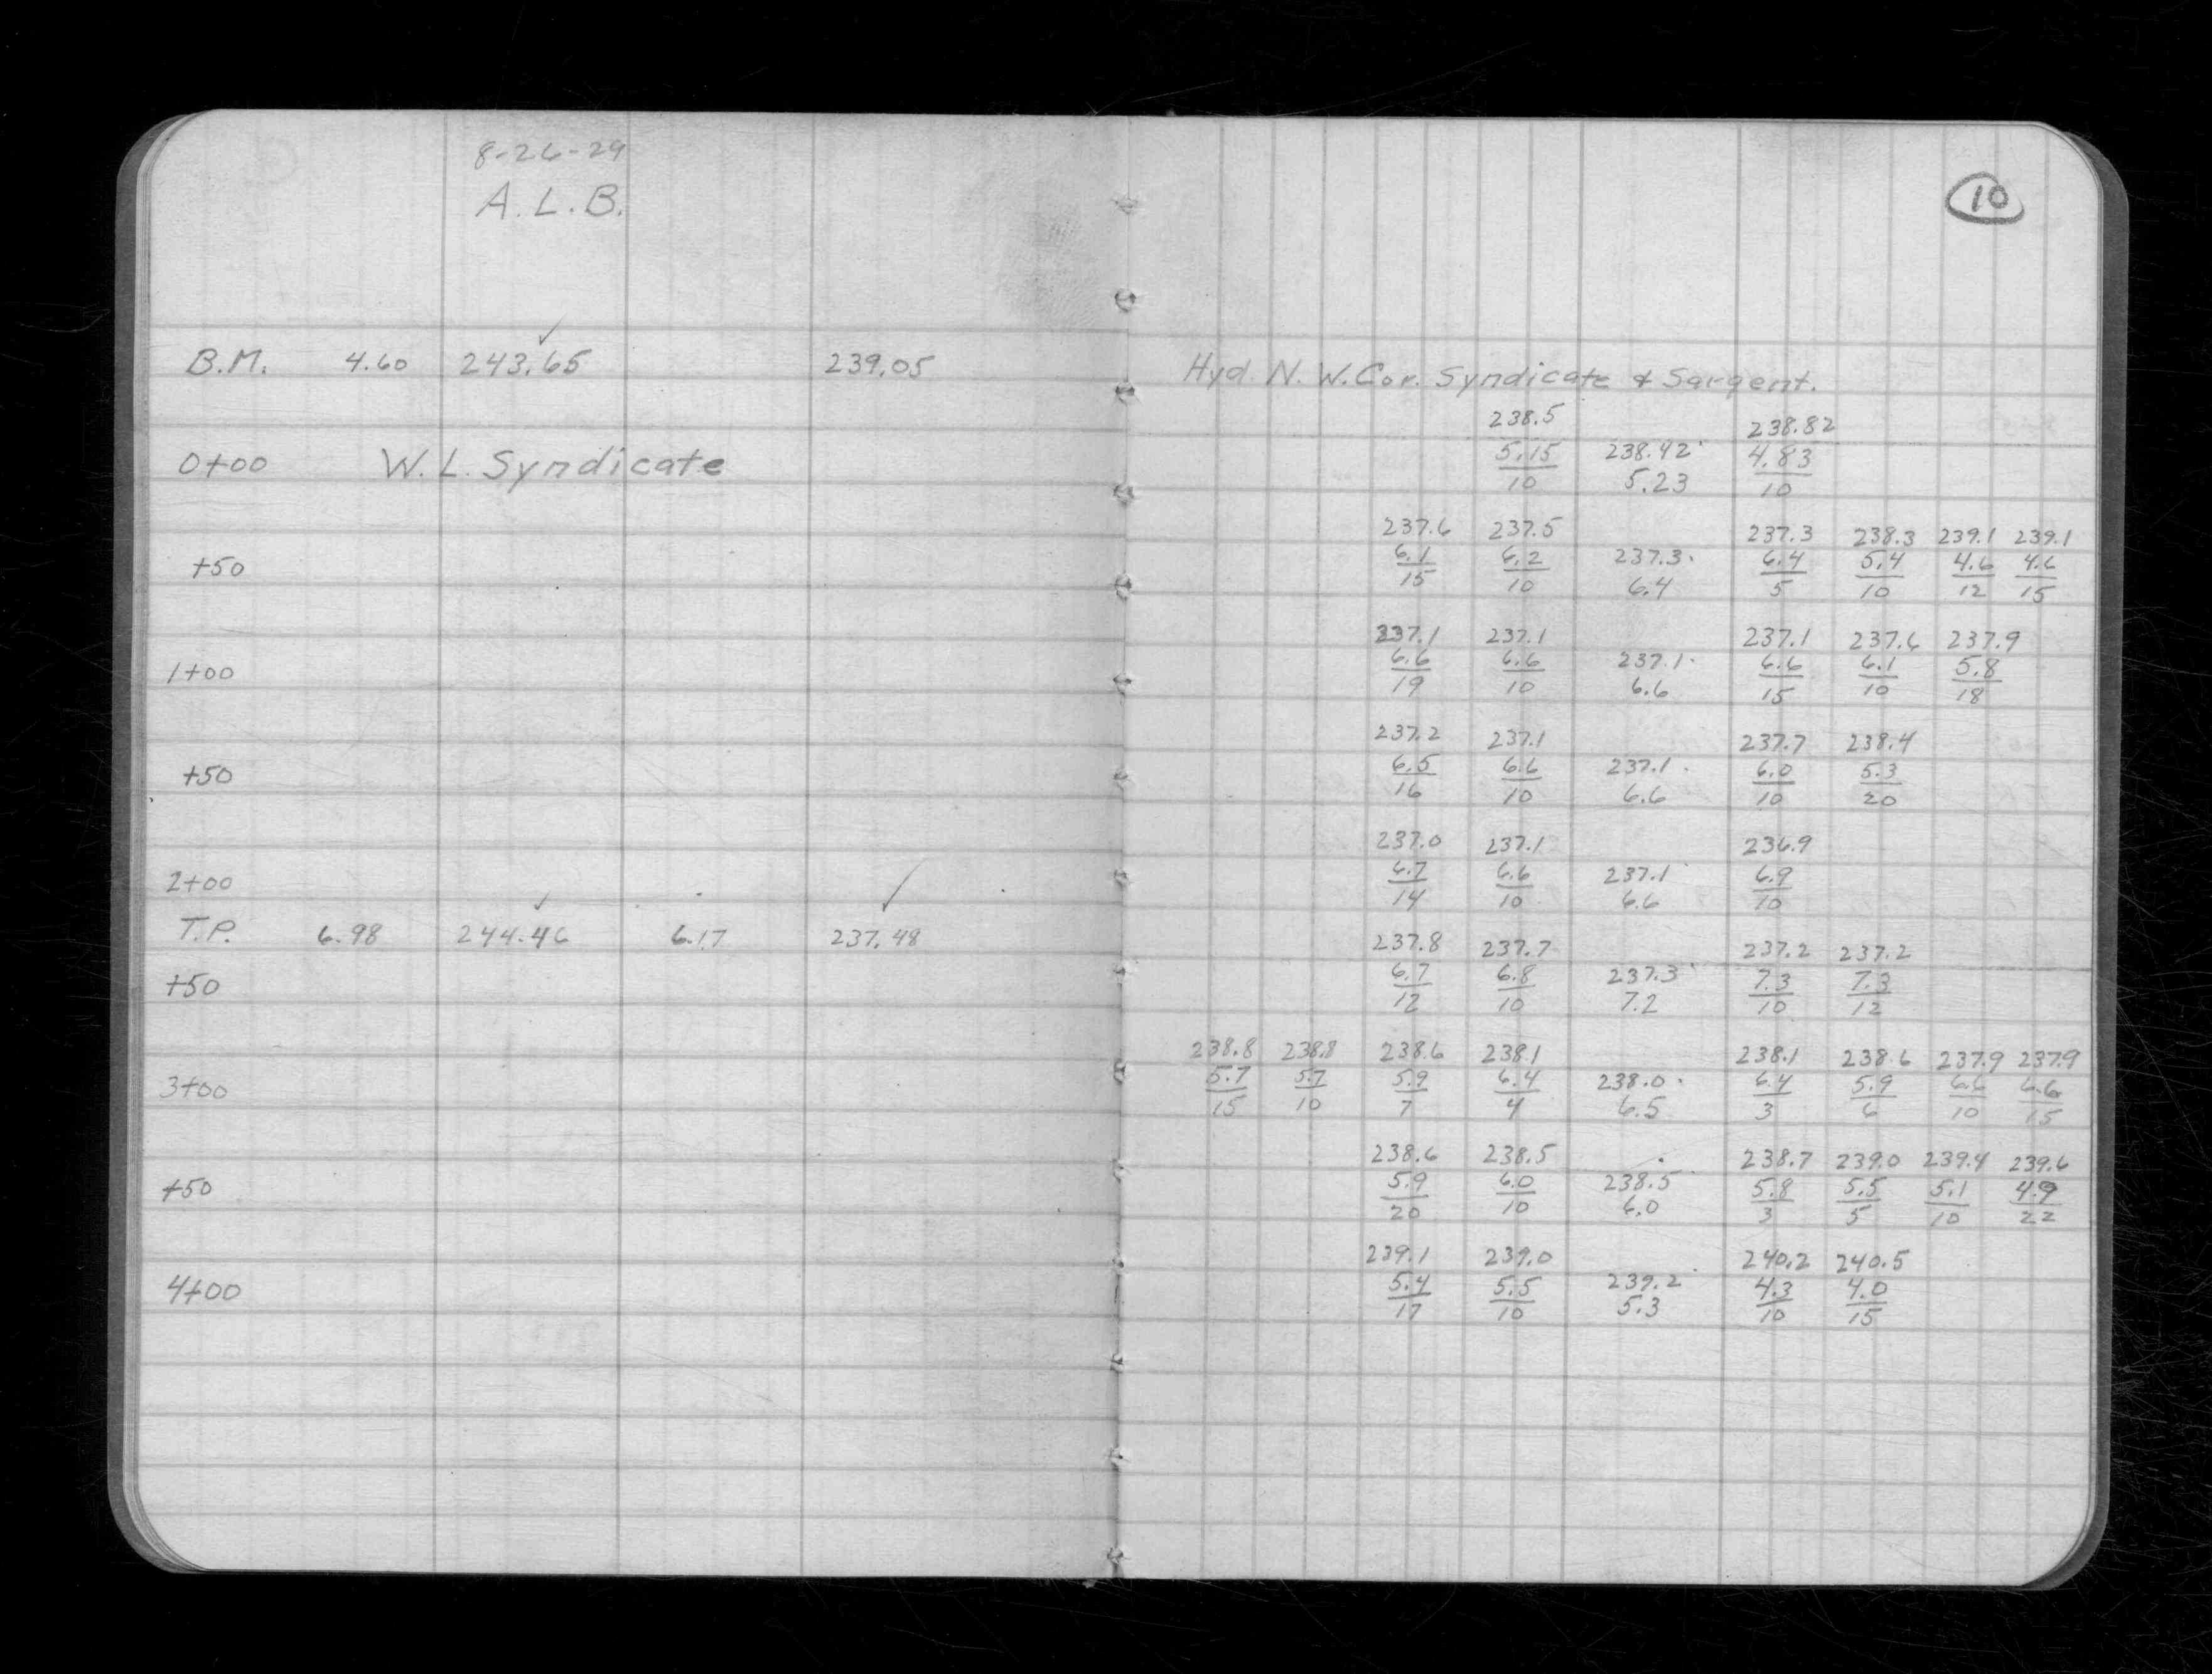 8-26-29
A.L.B.
10
B.M. 4.60 243.65 239.05
Hyd. N. W. Cor. Syndicate & Sargent.
238.5 238.82
0+00 W. L. Syndicate 5.15 238.42 4.83
10 5.23 10
237.6 237.5 237.3 238.3 239.1 239.1
+50 6.1 6.2 237.3 6.4 5.4 4.6 4.6
15 10 6.4 5 10 12 15
237.1 237.1 237.1 237.6 237.9
1+00 6.6 6.6 237.1 6.6 6.1 5.8
19 10 6.6 15 10 18
237.2 237.1 237.7 238.4
+50 6.5 6.6 237.1 6.0 5.3
16 10 6.6 10 20
237.0 237.1 236.9
2+00 6.7 6.6 237.1 6.9
14 10 6.6 10
T.P. 6.98 244.46 6.17 237.48
237.8 237.7 237.2 237.2
+50 6.7 6.8 237.3 7.3 7.3
12 10 7.2 10 12
238.8 238.8 238.6 238.1 238.1 238.6 237.9 237.9
3+00 5.7 5.7 5.9 6.4 238.0 6.4 5.9 6.6 6.6
15 10 7 4 6.5 3 6 10 15
238.6 238.5 238.7 239.0 239.4 239.6
+50 5.9 6.0 238.5 5.8 5.5 5.1 4.9
20 10 6.0 3 5 10 22
239.1 239.0 240.2 240.5
4+00 5.4 5.5 239.2 4.3 4.0
17 10 5.3 10 15